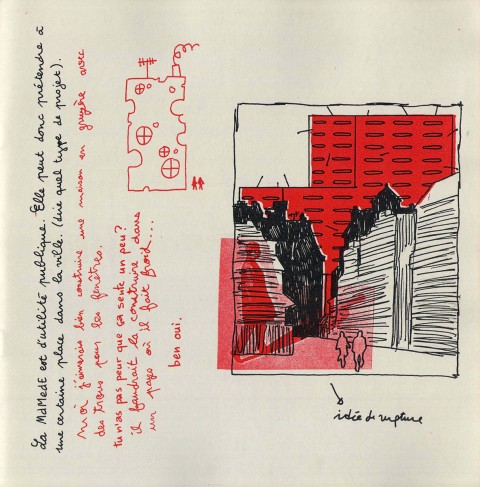 La MdMedE est d'utilité publique. Elle peut donc prétendre à
une certaine place dans la ville. (lire quel type de projet).
moi j'aimerais bien construire une maison en gruyère avec
des trous pour les fenêtres.
tu n'as pas peur que ça sente un peu?
il faudrait la construire dans
un pays où il fait froid...
ben oui.
idée de rupture